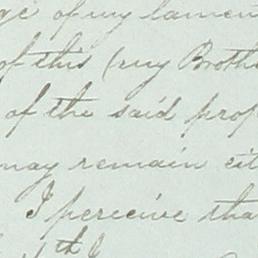 ge of my lamen
of this (my Broth
of the said prop
may remain eit
I perceive tha
th